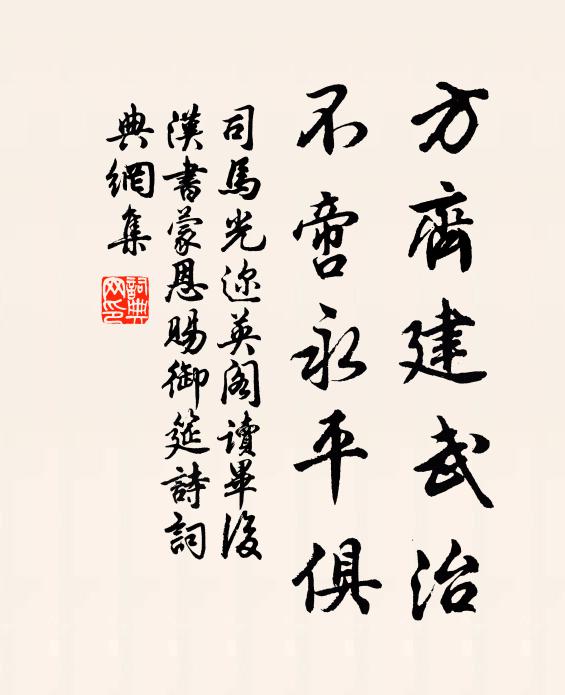 方齊建武治
不啻永平俱
司馬光迩英阁讀畢後
漢書蒙恩賜御筵詩詞
典網集
詞典网印